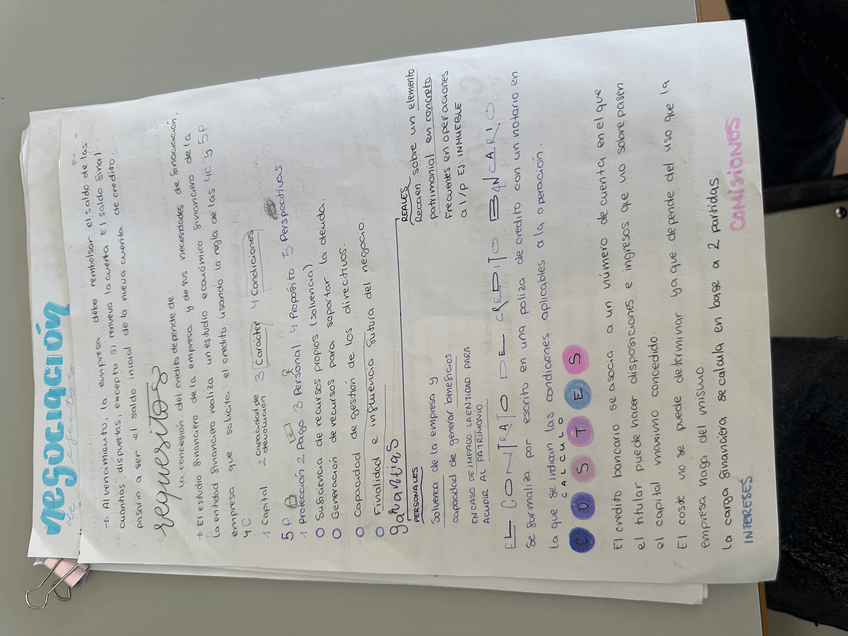 negociación
→ Al vencimiento, la empresa debe rembolsar el saldo de las
cuantías dispuestas, excepto si renueva la cuenta. El saldo final
pasaría a ser el saldo inicial de la nueva cuenta de credito.
requesitos
la concesión del credito depende de:
→ El estudio financiero de la empresa y de sus necesidades de financiación.
La entidad financiera realiza un estudio económico financiero de la
empresa que solicita el credito usando la regla de las 4C y 5P
4C
1 Capital 2 capacidad de devolución 3 Caracter 4 Condiciones
5P
1 Protección 2 Pago 3 Personal 4 Propósito 5 Perspectivas
O Suficiencia de recursos propios (solvencia)
O Generación de recursos para soportar la deuda.
O Capacidad de gestión de los directivos.
O Finalidad e influencia futura del negocio
garantías
PERSONALES
Solvencia de la empresa y
capacidad de generar beneficios
EN CASO DE IMPAGO LA ENTIDAD PARA
ACUDIR AL PATRIMONIO.
REALES
Recaen sobre un elemento
patrimonial en concreto.
Frecuentes en operaciones
a l/p EJ. INMUEBLE
EL CONTRATO DE CREDITO BANCARIO
Se formaliza por escrito en una poliza de credito con un notario en
la que se indican las condiciones aplicables a la operación.
CALCULO
COSTES
El credito bancario se asocia a un número de cuenta, en el que
el titular puede hacer disposiciones e ingresos que no sobrepasen
el capital maximo concedido.
El coste no se puede determinar ya que depende del uso que la
empresa haga del mismo.
La carga financiera se calcula en base a 2 partidas
INTERESES
COMISIONES